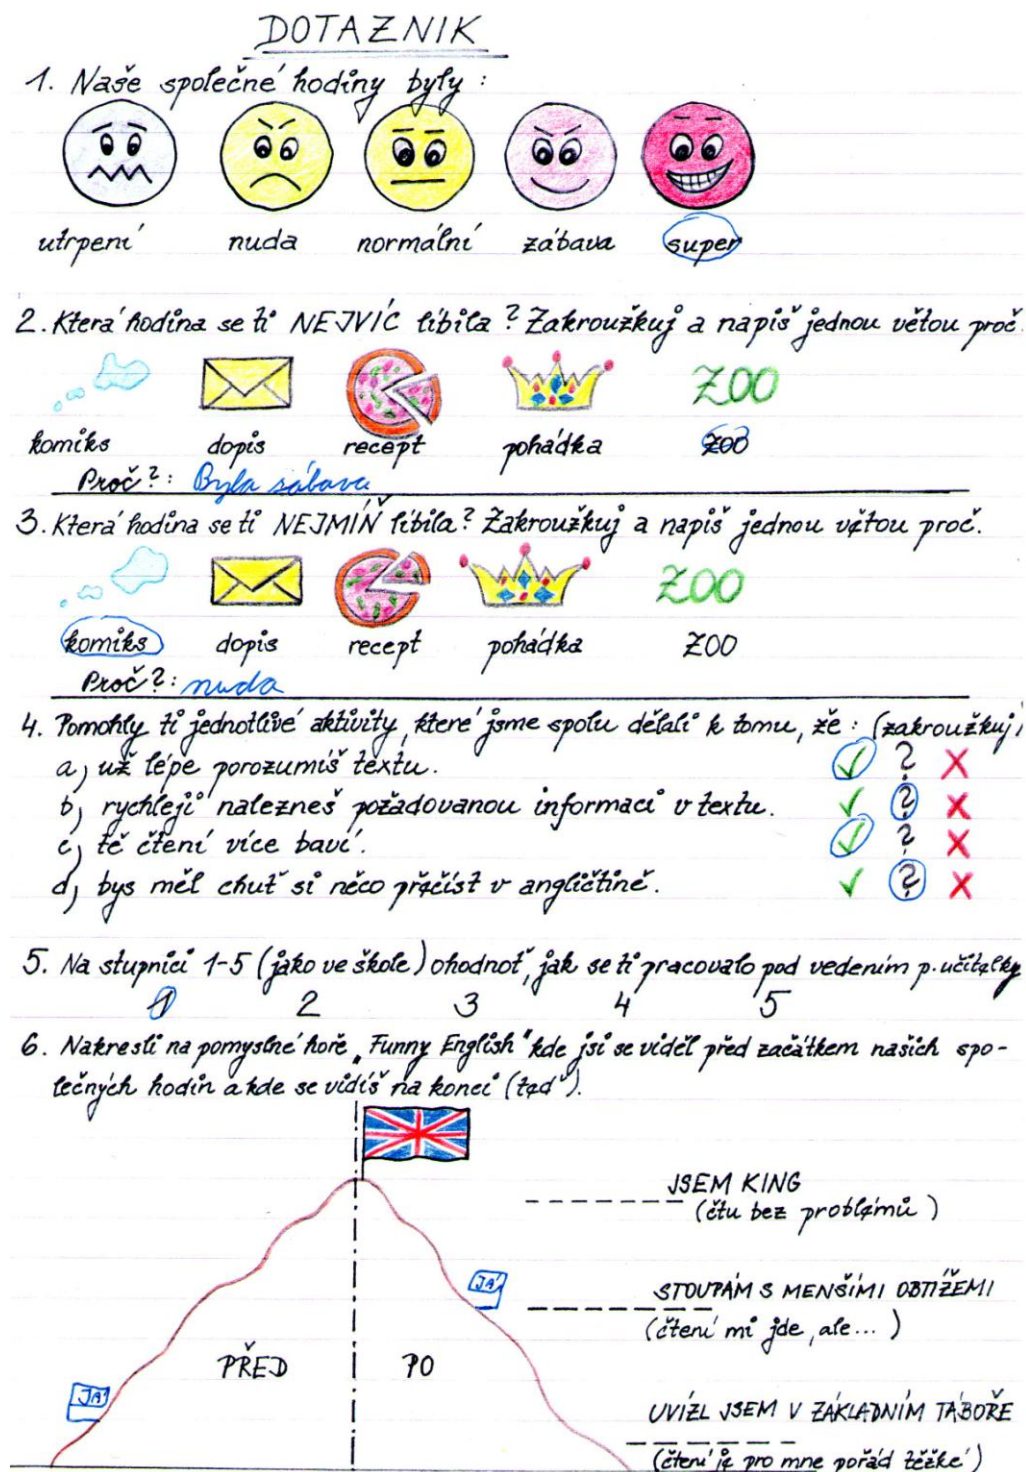 DOTAZNIK
1. Naše společné hodiny byly :
utrpení nuda normální zábava super
2. Která hodina se ti NEJVÍC líbila ? Zakroužkuj a napiš jednou větou proč.
ZOO
komiks dopis recept pohádka ZOO
Proč ? : Byla zábava
3. Která hodina se ti NEJMÍŇ líbila ? Zakroužkuj a napiš jednou větou proč.
ZOO
komiks dopis recept pohádka ZOO
Proč ? : nuda
4. Pomohly ti jednotlivé aktivity, které jsme spolu dělali k tomu, že : (zakroužkuj)
a) už lépe porozumíš textu. ✓ ? X
b) rychleji nalezneš požadovanou informaci v textu. ✓ ? X
c) tě čtení více baví. ✓ ? X
d) bys měl chuť si něco přečíst v angličtině. ✓ ? X
5. Na stupnici 1-5 (jako ve škole) ohodnoť, jak se ti pracovalo pod vedením p. učitelky
1 2 3 4 5
6. Nakresli na pomyslné hoře „Funny English" kde jsi se viděl před začátkem našich spo-
lečných hodin a kde se vidíš na konci (teď).
JSEM KING
(čtu bez problémů)
JÁ
STOUPÁM S MENŠÍMI OBTÍŽEMI
(čtení mi jde, ale...)
PŘED PO
JÁ
UVÍZL JSEM V ZÁKLADNÍM TÁBOŘE
(čtení je pro mne pořád těžké)